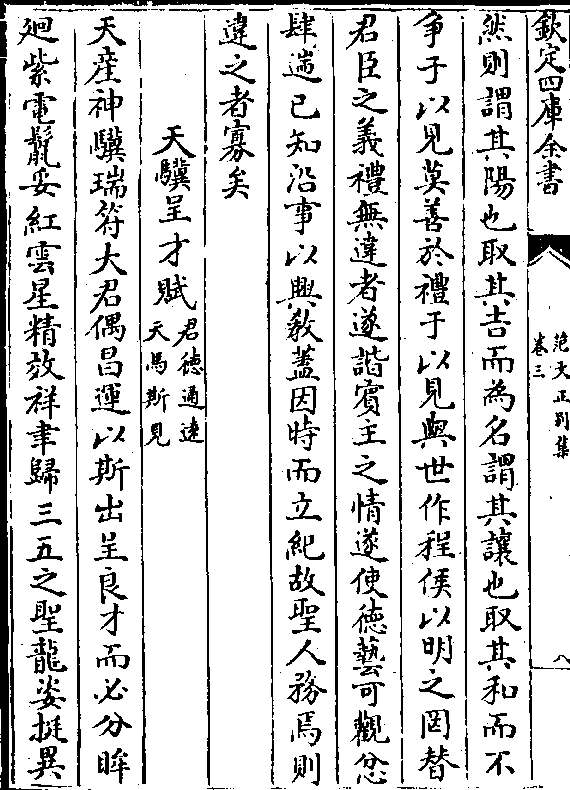 欽定四庫全書
范文正别集
卷三
八
然則謂其陽也取其吉而為名謂其讓也取其和而不
争于以見莫善於禮于以見與世作程俟以明之罔替
君臣之義禮無違者遂諧賓主之情遂使德藝可觀忿
肆遄已知沿事以興教蓋因時而立紀故聖人務焉則
違之者寡矣
天驥呈才賦君德通逺
天馬斯見
天産神驥瑞符大君偶昌運以斯出呈良才而必分眸
廻紫電鬛妥紅雲星精效祥聿歸三五之聖龍姿挺異